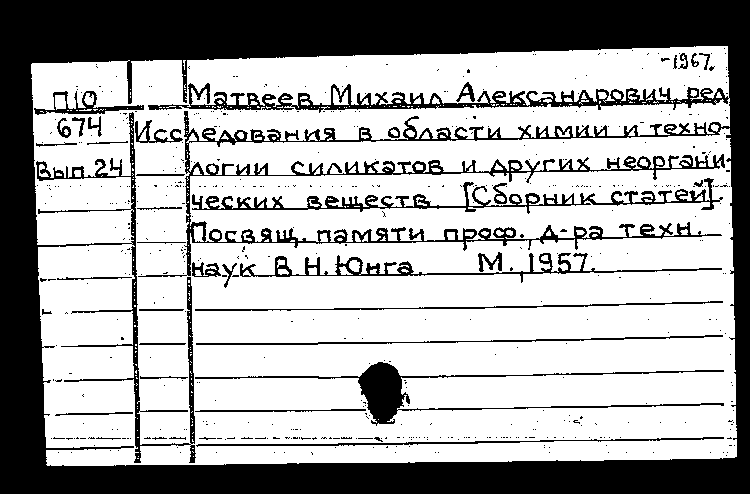 -1967.
П10 Матвеев, Михаил Александрович, ред.
674 Исследования в области химии и техно-
Вып.24 логии силикатов и других неоргани-
ческих веществ. [Сборник статей].
Посвящ. памяти проф., д-ра техн.
наук В.Н.Юнга. М., 1957.